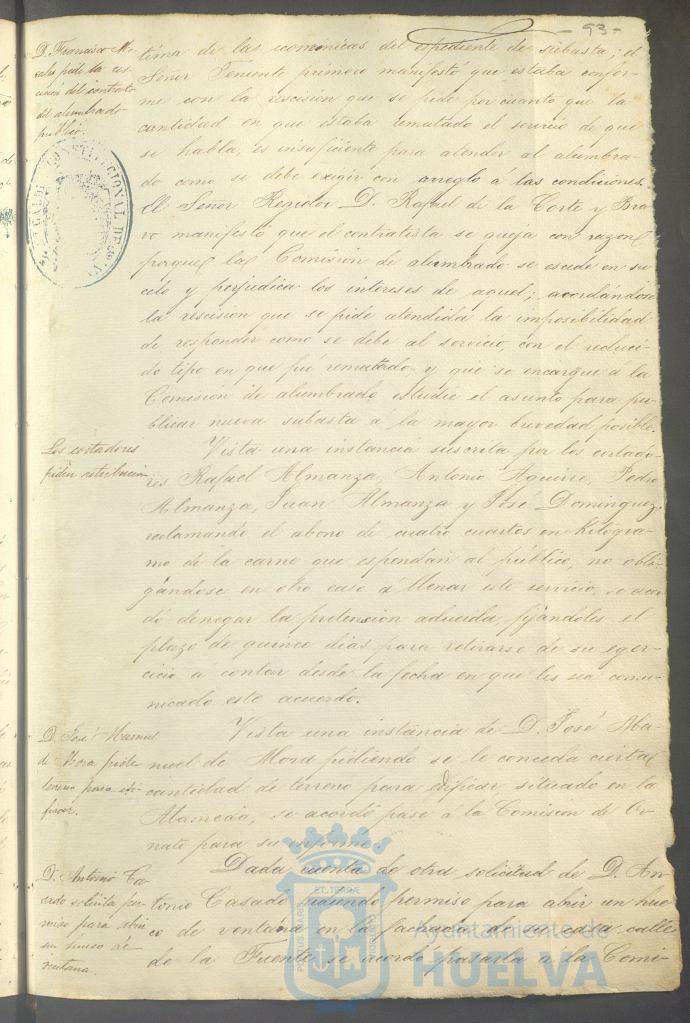 - 93 -
D. Francisco Mo-
rales pide la res-
cisión del contrato
del alumbrado
público.
tima de las economicas del espediente de subasta; el
Señor Teniente primero manifestó que estaba confor-
me con la rescisión que se pide por cuanto que la
cantidad en que estaba rematado el servicio de que
se habla, es insuficiente para atender al alumbra-
do como se debe exigir con arreglo á las condiciones.
El Señor Regidor D. Rafael de la Corte y Bra-
vo manifestó que el contratista se queja con razon
porque la Comisión de alumbrado se escede en su
celo y perjudica los intereses de aquel; acordándose
la rescision que se pide atendida la imposibilidad
de responder como se debe al servicio, con el reduci-
do tipo en que fué rematado y que se encargue á la
Comisión de alumbrado estudie el asunto para pu-
blicar nueva subasta a la mayor brevedad posible.
Los cortadores
piden retribución
Vista una instancia suscrita por los cortado-
res Rafael Almanza, Antonio Aguirre, Pedro
Almanza, Juan Almanza y José Dominguez,
reclamando el abono de cuatro cuartos en Kilógra-
mo de la carne que espendan al público, no obli-
gándose en otro caso á llenar este servicio, se acor-
dó denegar la pretension aducida, fijándoles el
plazo de quince dias para retirarse de su eger-
cicio á contar desde la fecha en que les sea comu-
nicado este acuerdo.
D. José Manuel
de Mora pide
terreno para edi-
ficar.
Vista una instancia de D. José Ma-
nuel de Mora pidiendo se le conceda cierta
cantidad de terreno para edificar, situado en la
Alameda, se acordó pase á la Comision de Or-
nato para su informe.
D. Antonio Ca-
sado solicita per-
miso para abrir
un hueco de
ventana.
Dada cuenta de otra solicitud de D. An-
tonio Casado pidiendo permiso para abrir un hue-
co de ventana en la fachada de su casa calle
de la Fuente se acordó pasarla á la Comi-
Ayuntamiento de
HUELVA